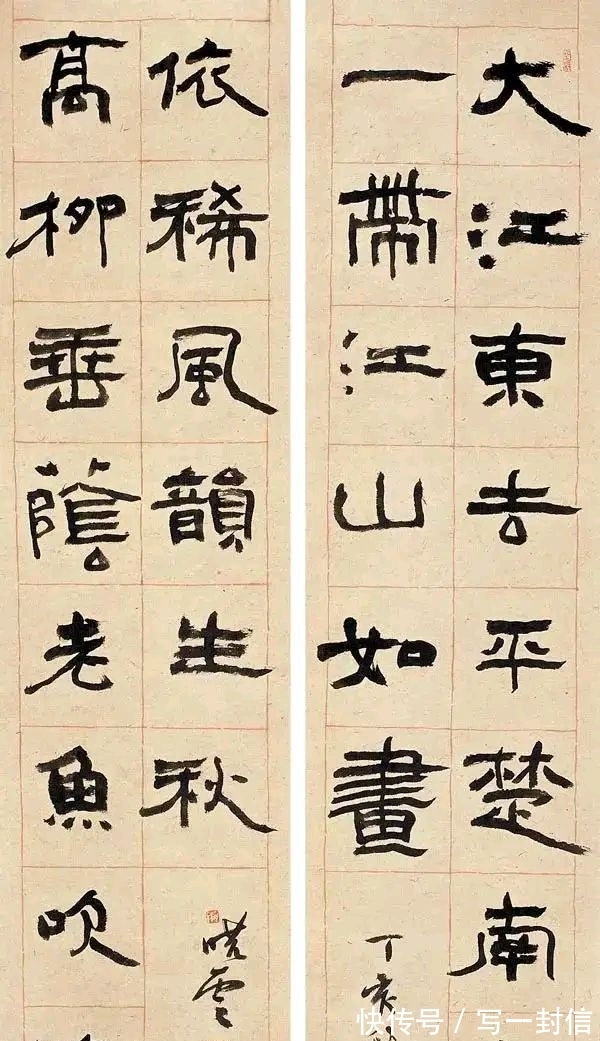 大江東去平楚南
一帶江山如畫
丁亥
高柳垂蔭老魚吹
依稀風韻生秋
曉雲
快传号 / 写一封信